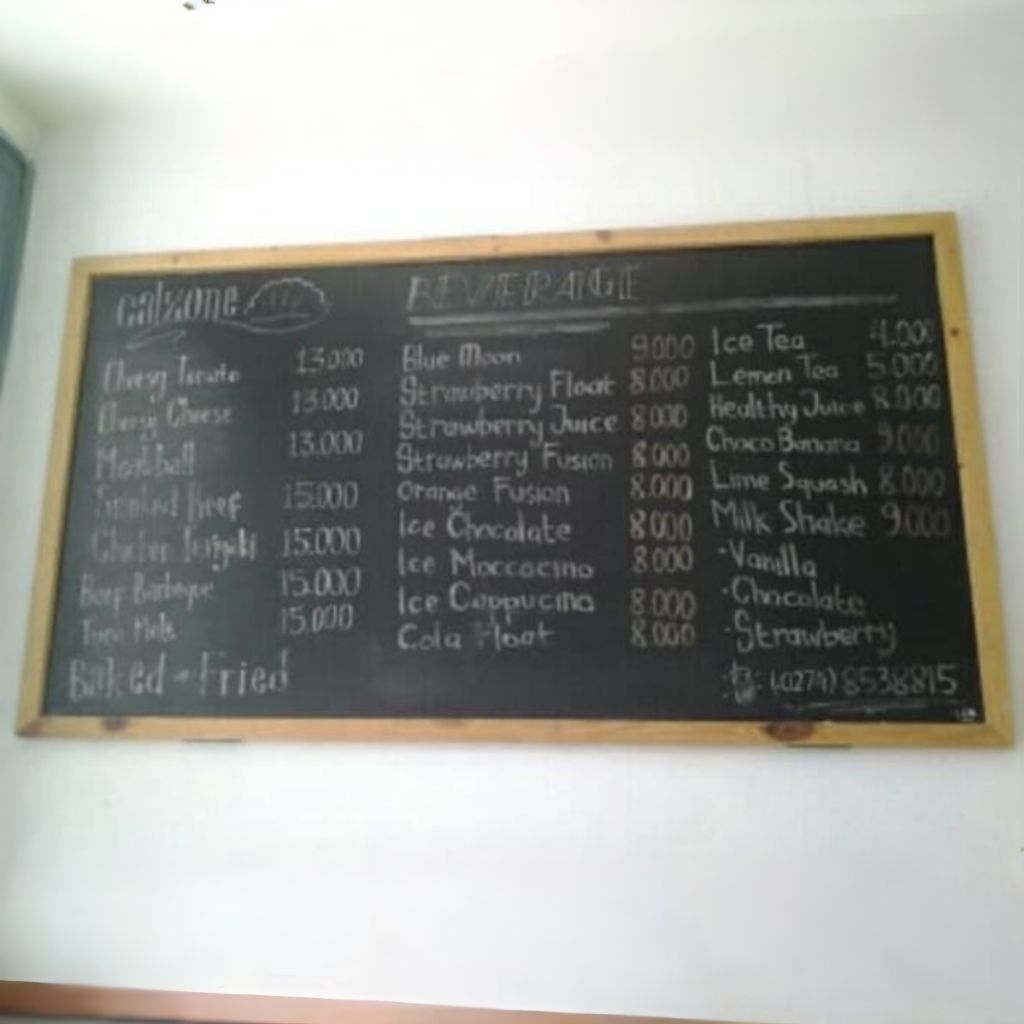 calzone
Cheesy Tomato 13.000
Cheesy Cheese 13.000
Meatball 13.000
Smoked Beef 15.000
Chicken Teriyaki 15.000
Beef Barbeque 15.000
Tuna Melt 15.000
Baked - Fried
BEVERAGE
Blue Moon 9.000
Strawberry Float 8.000
Strawberry Juice 8.000
Strawberry Fusion 8.000
Orange Fusion 8.000
Ice Chocolate 8.000
Ice Moccacino 8.000
Ice Cappucino 8.000
Cola Float 8.000
Ice Tea 4.000
Lemon Tea 5.000
Healthy Juice 8.000
Choco Banana 9.000
Lime Squash 8.000
Milk Shake 9.000
· Vanilla
· Chocolate
· Strawberry
: (0274) 8538815